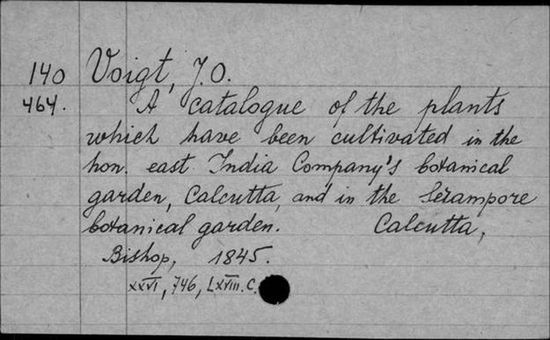 140 Voigt, J.O.
464. A catalogue of the plants
which have been cultivated in the
hon. east India Company's botanical
garden, Calcutta, and in the Serampore
botanical garden. Calcutta,
Bishop, 1845.
xxvi, 746, Lxviii. C.